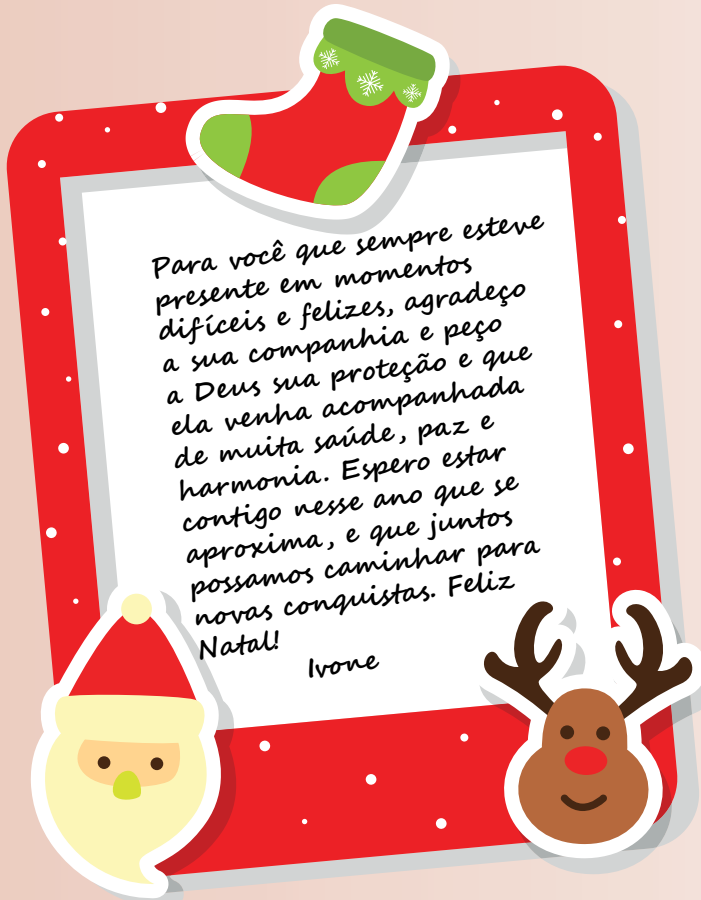 Para você que sempre esteve
presente em momentos
difíceis e felizes, agradeço
a sua companhia e peço
a Deus sua proteção e que
ela venha acompanhada
de muita saúde, paz e
harmonia. Espero estar
contigo nesse ano que se
aproxima, e que juntos
possamos caminhar para
novas conquistas. Feliz
Natal!
Ivone